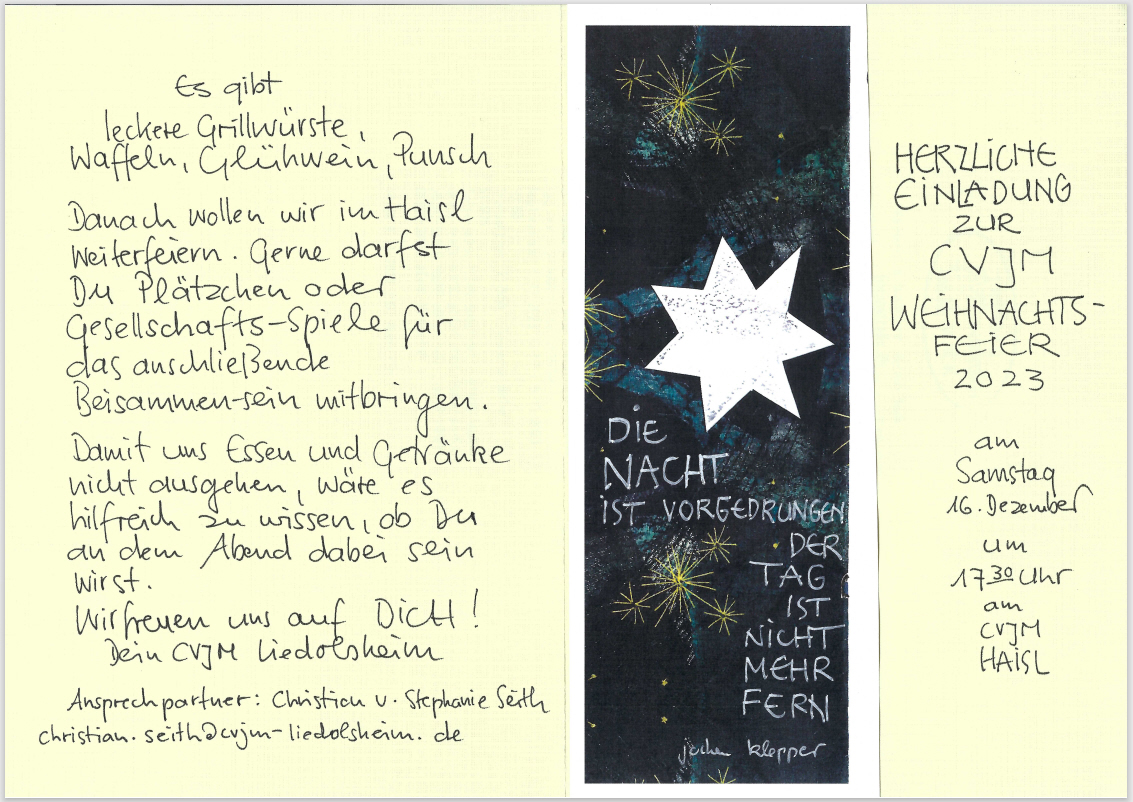 Es gibt
leckere Grillwürste,
Waffeln, Glühwein, Punsch
Danach wollen wir im Haisl
weiterfeiern. Gerne darfst
Du Plätzchen oder
Gesellschafts-Spiele für
das anschließende
Beisammen-sein mitbringen.
Damit uns Essen und Getränke
nicht ausgehen, wäre es
hilfreich zu wissen, ob Du
an dem Abend dabei sein
wirst.
Wir freuen uns auf DICH!
Dein CVJM Liedolsheim
Ansprechpartner: Christian u. Stephanie Seith
christian.seith@cvjm-liedolsheim.de
DIE
NACHT
IST VORGEDRUNGEN
DER
TAG
IST
NICHT
MEHR
FERN
jochen klepper
HERZLICHE
EINLADUNG
ZUR
CVJM
WEIHNACHTS-
FEIER
2023
am
Samstag
16. Dezember
um
17 30 Uhr
am
CVJM
HAISL